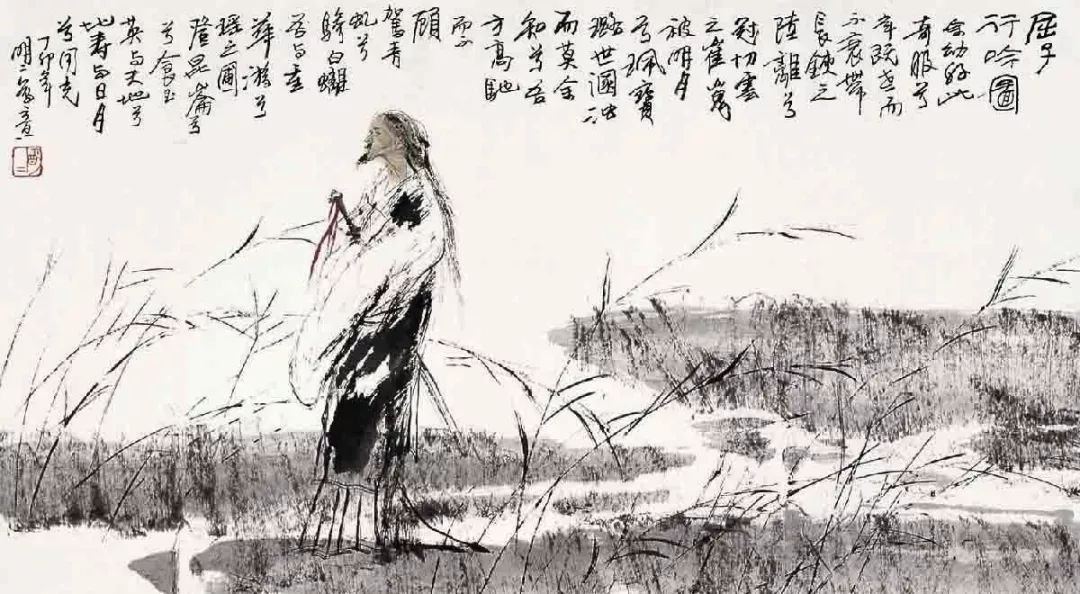 屈子
行吟圖
余幼好此
奇服兮
年既老而
不衰帶
長鋏之
陸離兮
冠切雲
之崔嵬
被明月
兮珮寶
璐世溷濁
而莫余
知兮吾
方高馳
而不
顧
駕青
虬兮
驂白螭
吾與重
華游兮
瑤之圃
登崑崙兮
兮食玉
英與天地兮
比壽與日月
兮同光
丁卯年
明